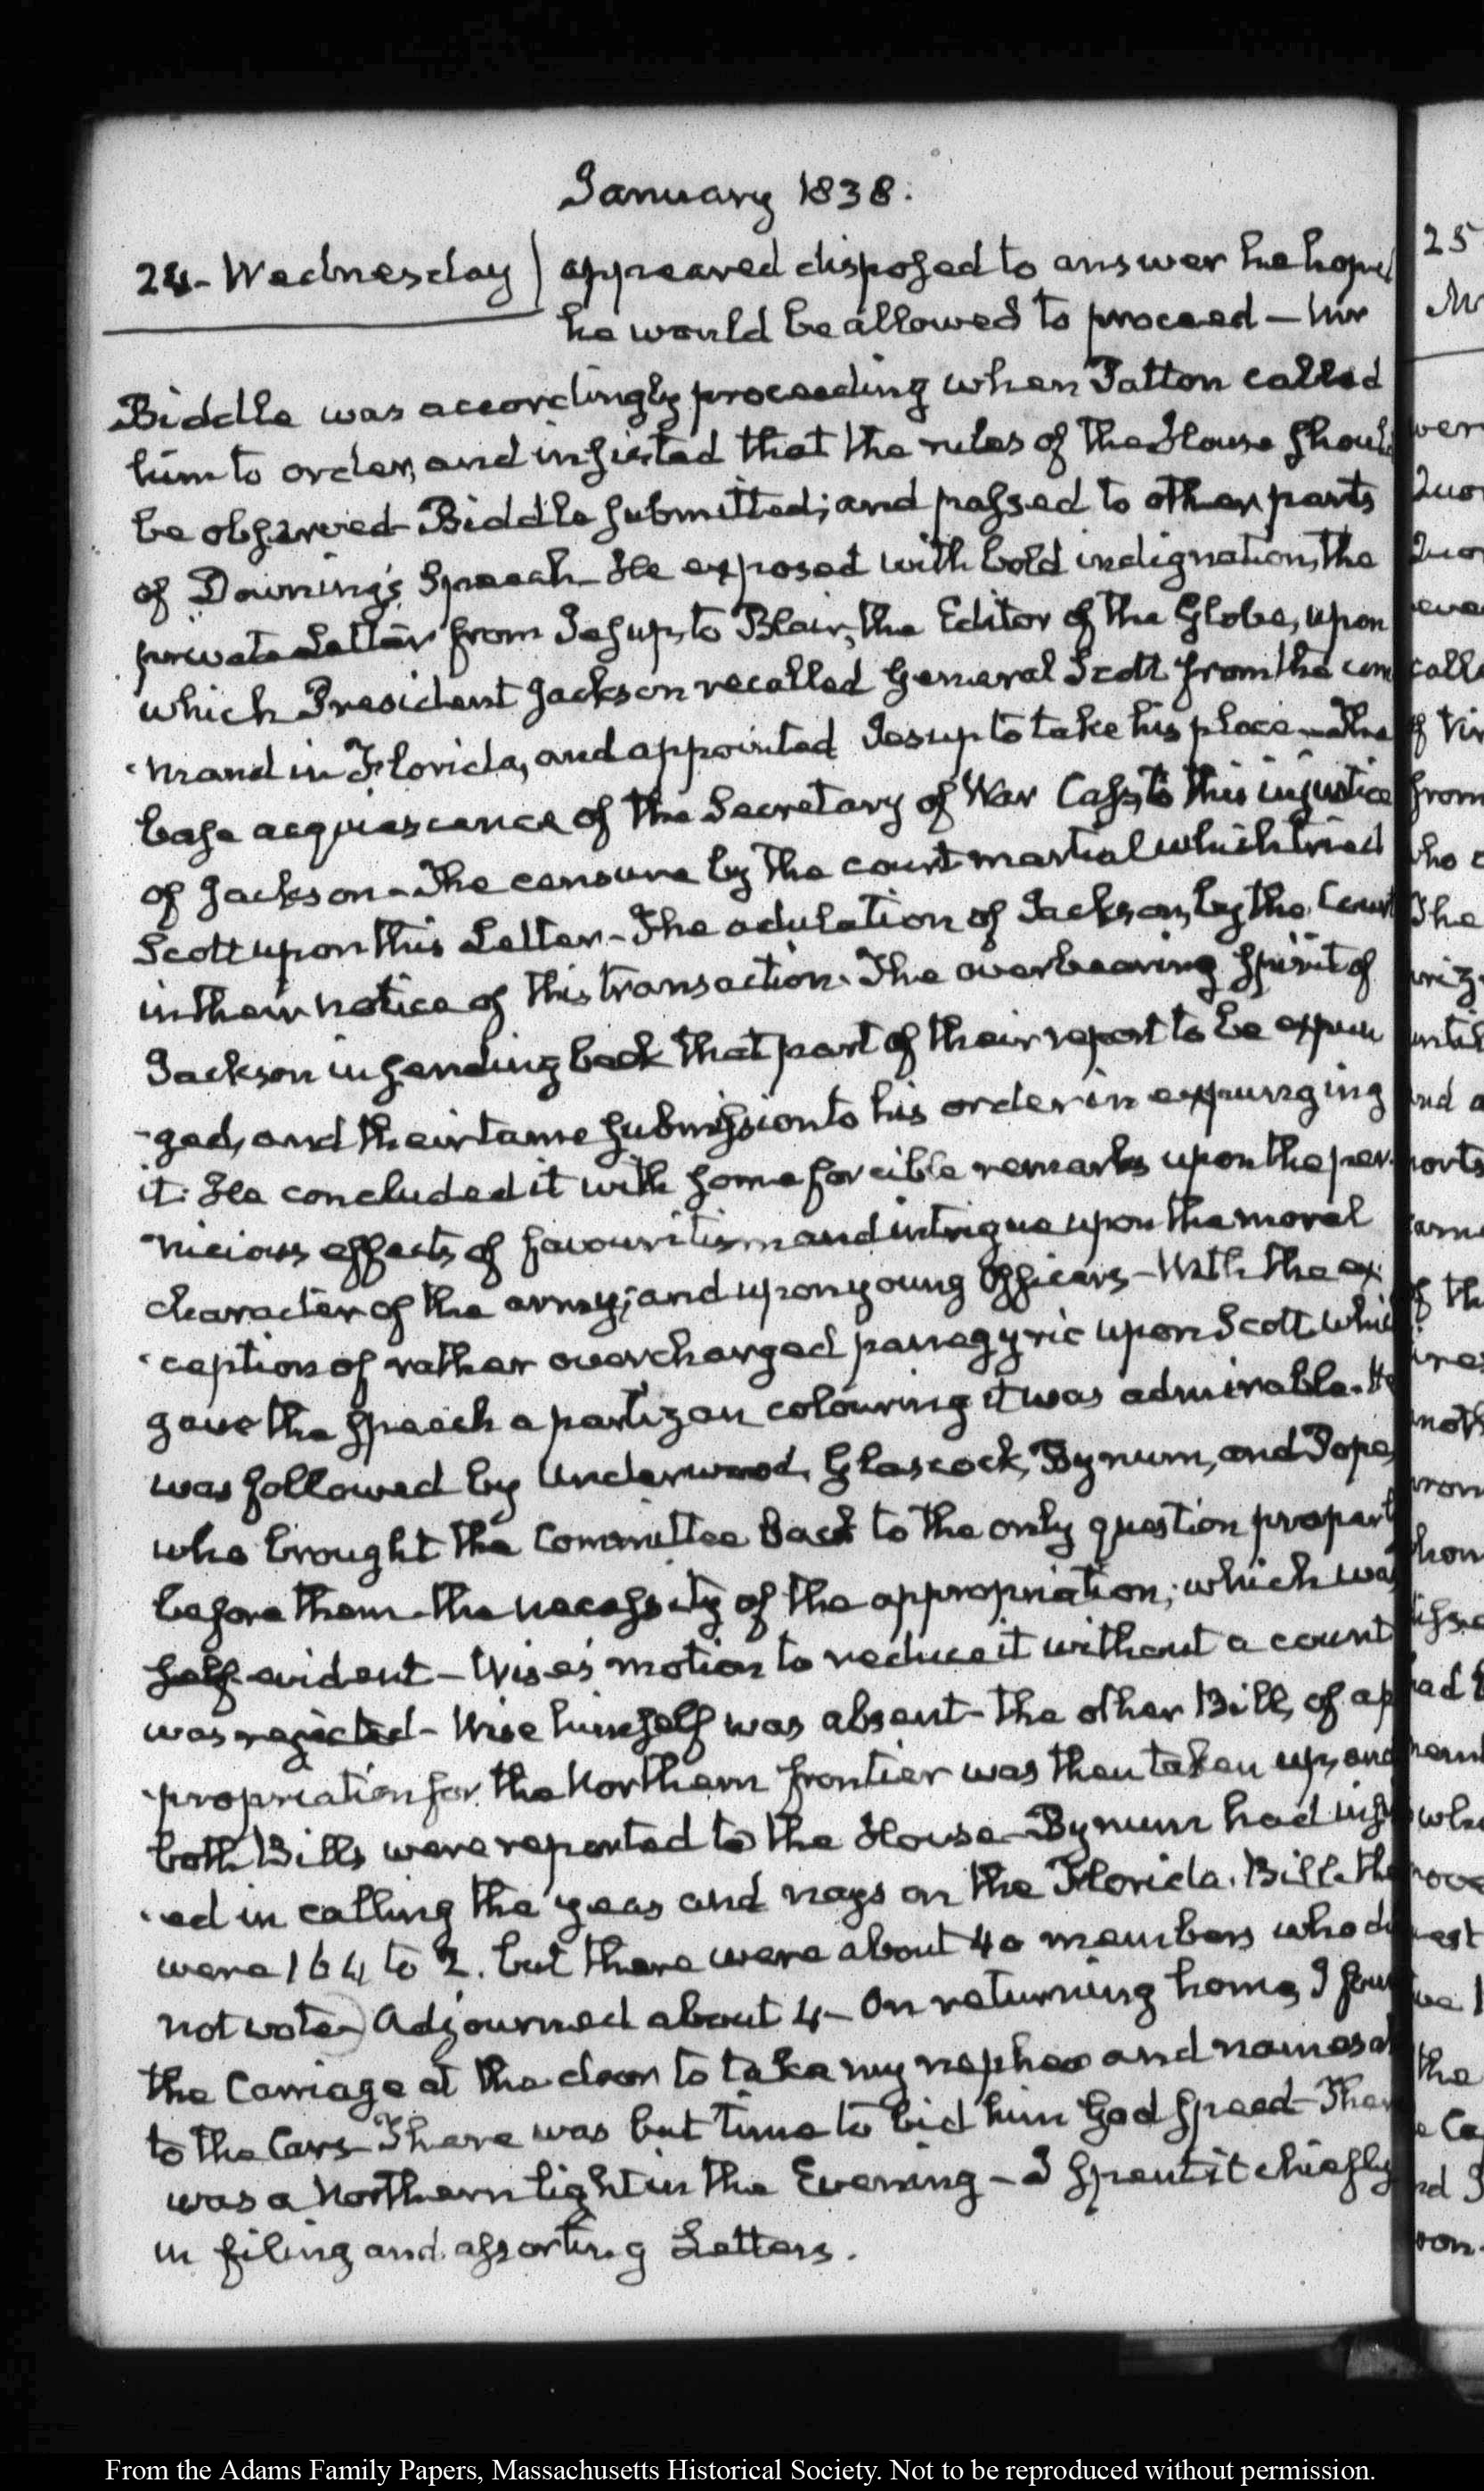 January 1838.
24- Wednesday
appeared disposed to answer he hoped
he would be allowed to proceed – Mr
Biddle was accordingly proceeding when Patton called
him to order, and insisted that the rules of the House shoul
be observed– Biddle submitted; and passed to other parts
of Downing's Speech– He exposed with bold indignation, the
private Letter from Jesup, to Blair, the Editor of the Globe, upon
which President Jackson recalled General Scott from the com
-mand in Florida, and appointed Jesup to take his place – The
base acquiescence of the Secretary of War Cass, to this injustice
of Jackson – The censure by the court martial which tried
Scott upon this Letter – The adulation of Jackson, by the Court
in their notice of this transaction. The overbearing spirit of
Jackson in sending back that part of their report to be expun
-ged, and their tame submission to his order in expunging
it. He concluded it with some forcible remarks upon the per-
nicious effects of favouritism and intrigue upon the moral
character of the army; and upon young Officers – With the ex
-ception of rather overcharged panegyric upon Scott, which
gave the speech a partizan colouring it was admirable. He
was followed by Underwood, Glascock, Bynum, and Pope,
who brought the Committee back to the only question
before them – the necessity of the appropriation; which was
self-evident – Wise's motion to reduce it without a count
was rejected – Wise himself was absent – The other Bill, of ap
-propriation for the Northern frontier was then taken up, and
both Bills were reported to the House – Bynum had
ed in calling the yeas and nays on the Florida Bill –
were 164 to 2. but there were about 40 members who
not vote – Adjourned about 4 – On returning home, I
the Carriage at the door to take my nephew and
to the Cars – There was but time to bid him God speed – There
was a Northern light in the Evening – I spent it chiefly
in filing and assorting Letters.
25
From the Adams Family Papers, Massachusetts Historical Society. Not to be reproduced without permission.